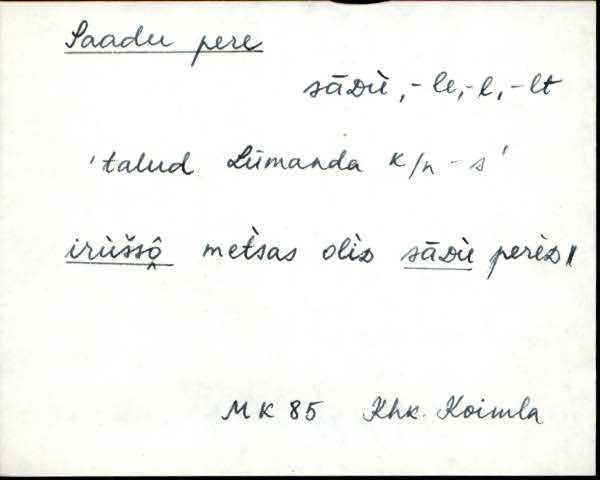 Saadu pere
sāDù, -le, -l, -lt
'talud Lümanda k/n-s'
irùšsô̭ met̀sas olìD sāDù perèD ||
MK 85 Khk. Koimla